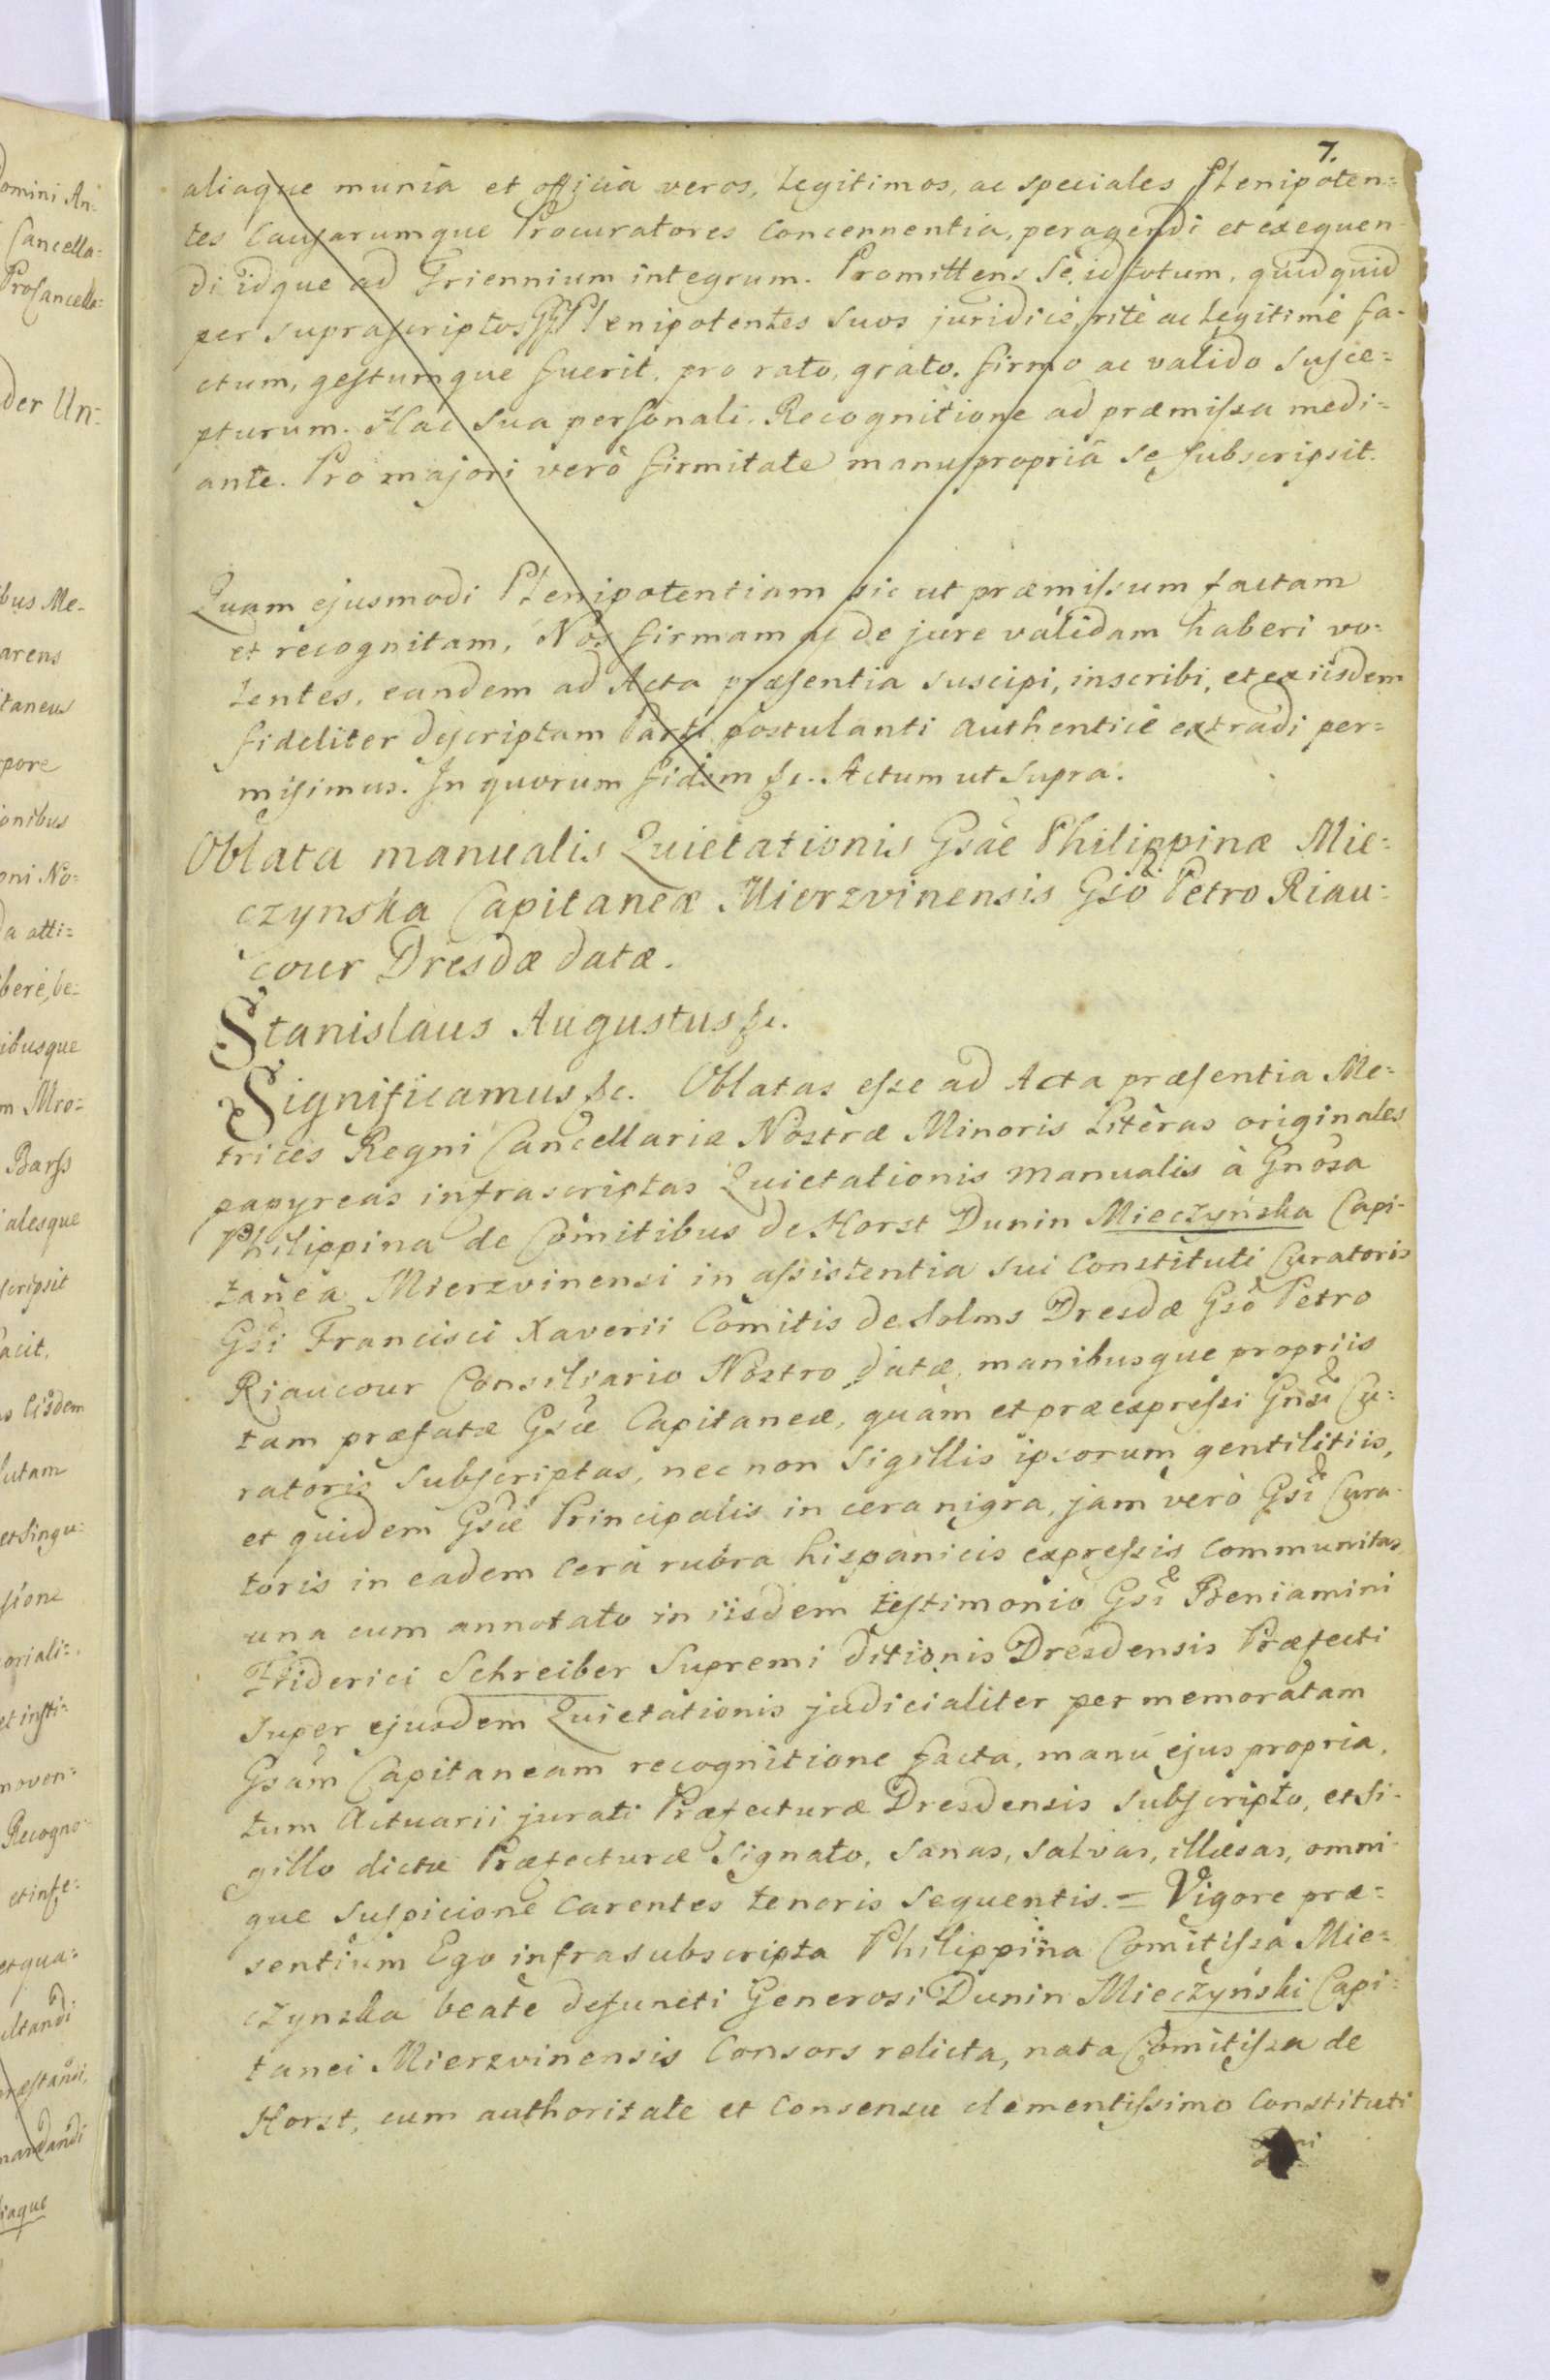 7.
aliaque munia et officia veros, Legitimos, ac speciales Plenipoten=
tes Causarumque Procuratores concernentia, peragendi et exequen=
di idque ad Triennium integrum. Promittens Se, id totum, quidquid
per suprascriptos Plenipotentes suos juridicè, ritè ac Legitimè fa-
ctum, gestumque fuerit, pro rato, grato, firmo ac valido susce=
pturum. Hac Sua personali Recognitione ad præmissa medi=
ante. Pro majori verò firmitate manu propriâ se subscripsit.
Quam ejusmodi Plenipotentiam sic ut præmissum factam
et recognitam, Nos firmam ac de jure validam haberi vo=
lentes, eandem ad Acta præsentia suscipi, inscribi, et ex iisdem
fideliter descriptam Parti postulanti authenticè extradi per=
misimus. In quorum fidem &c. Actum ut supra.
Oblata manualis Quietationis Gsae Philippinæ Mie=
czynska Capitaneæ Mierzvinensis Gso Petro Riau=
cour Dresdæ datæ.
Stanislaus Augustus &c.
Significamus &c. Oblatas esse ad Acta præsentia Me=
trices Regni Cancellariæ Nostræ Minoris Literas originales
papyreas infrascriptas Quietationis manualis à Gnosa
Philippina de Comitibus de Horst Dunin Mieczyńska Capi-
tanea Mierzvinensi in assistentia sui Constituti Curatoris
Gsi Francisci Xaverii Comitis de Solms Dresdæ Gso Petro
Riaucour Consiliario Nostro datæ, manibusque propriis
tam præfatæ Gsæ Capitaneæ, quàm et præexpressi Gnsi Cu=
ratoris subscriptas, nec non Sigillis ipsorum gentilitiis,
et quidem Gsæ Principalis in cera nigra, jam verò Gsi Cura-
toris in eadem cerâ rubra hispanicis expressis communitas
una cum annotato in iisdem testimonio Gsi Beniamini
Friderici Schreiber Supremi ditionis Dresdensis Præfecti
super ejusdem Quietationis judicialiter per memoratam
Gsam Capitaneam recognitione facta, manu ejus propria,
tum Actuarii jurati Præfecturæ Dresdensis subscripto, et Si-
gillo dictæ Præfecturæ Signato, Sanas, salvas, illæsas, omni-
que suspicione carentes tenoris sequentis. = Vigore præ=
sentium Ego infrasubscripta Philippina Comitissa Mie=
czynska beatè defuncti Generosi Dunin Mieczyński Capi=
tanei Mierzvinensis Consors relicta, nata Comitissa de
Horst, cum authoritate et Consensu clementissimo Constituti